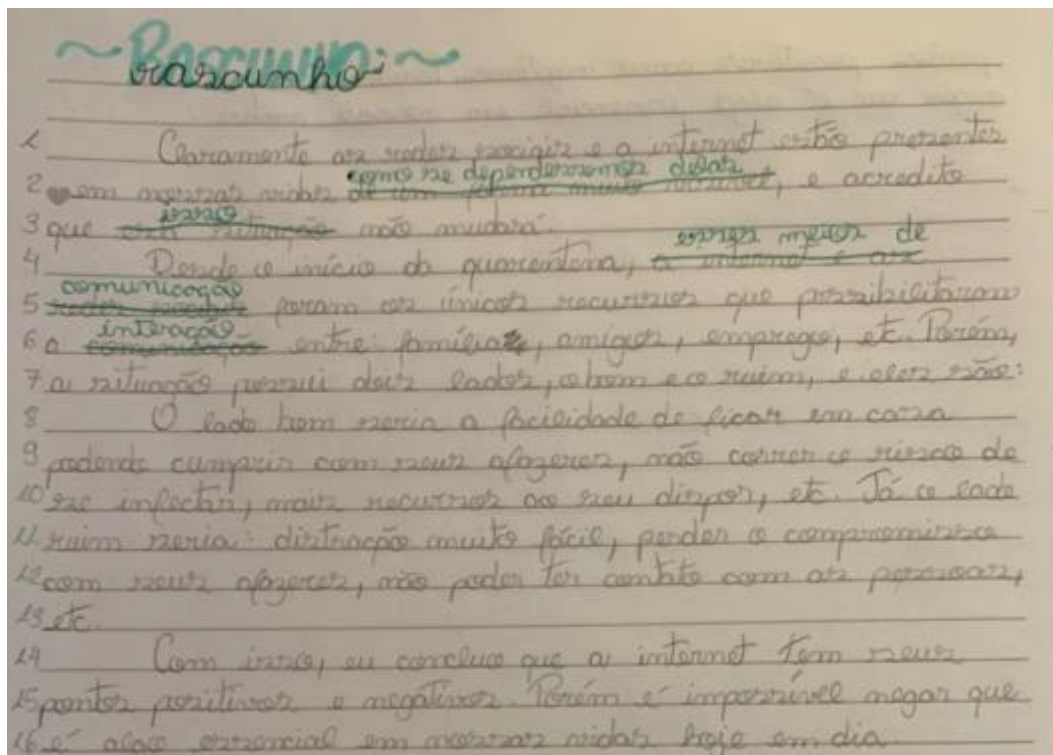 ~Rascunho:~
rascunho:
1 Claramente as redes sociais e a internet estão presentes
2 em nossas vidas como se dependessemos delas, e acredito
3 que isso não mudará.
4 Desde o início da quarentena, esses meios de
5 comunicação foram os únicos recursos que possibilitaram
6 a interação entre: família, amigos, emprego, etc. Porém,
7 a situação possui dois lados, o bom e o ruim, e eles são:
8 O lado bom seria a facilidade de ficar em casa
9 podendo cumprir com seus afazeres, não correr o risco de
10 se infectar, mais recursos ao seu dispor, etc. Já o lado
11 ruim seria: distração muito fácil, perder o compromisso
12 com seus afazeres, não poder ter contato com as pessoas,
13 etc.
14 Com isso, eu concluo que a internet tem seus
15 pontos positivos e negativos. Porém é impossível negar que
16 é algo essencial em nossas vidas hoje em dia.